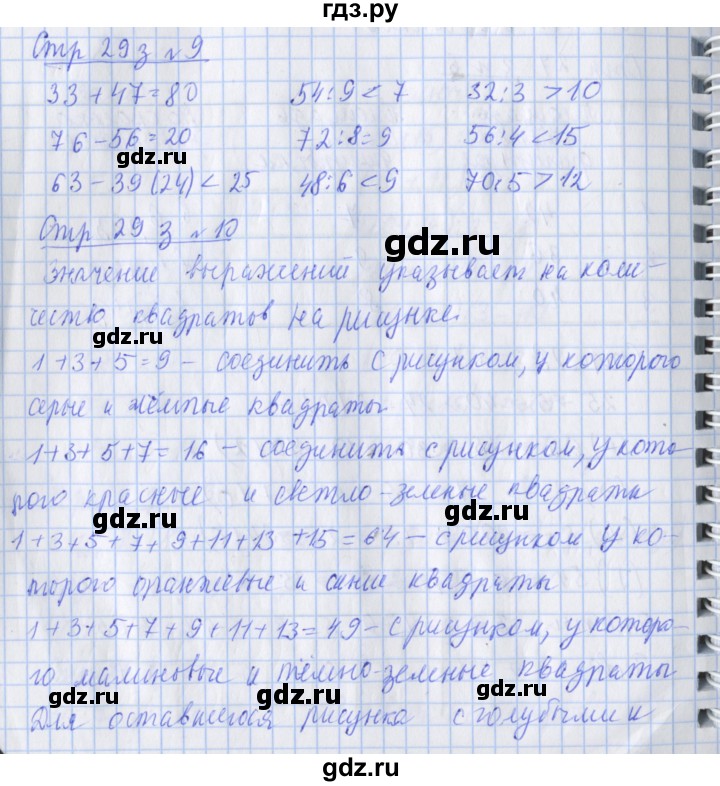 гдз.ру
Стр 29 з №9
33+47=80 54:9<7 32:3>10
76-56=20 72:8=9 56:4<15
gdz.ru
63-39(24)<25 48:6<9 70:5>12
Стр 29 з №10
gdz.ru
Значение выражений указывает на коли-
чество квадратов на рисунке.
gdz.ru
1+3+5=9 - соединить с рисунком, у которого
серые и тёмные квадраты
gdz.ru
1+3+5+7=16 - соединить с рисунком, у кото-
рого красные и светло-зеленые квадраты
gdz.ru
1+3+5+7+9+11+13+15=64 - с рисунком у ко-
торого оранжевые и синие квадраты
gdz.ru
1+3+5+7+9+11+13=49 - с рисунком, у которо-
го малиновые и тёмно-зеленые квадраты
gdz.ru gdz.ru
Для оставшегося рисунка с голубыми и
gdz.ru
gdz.ru